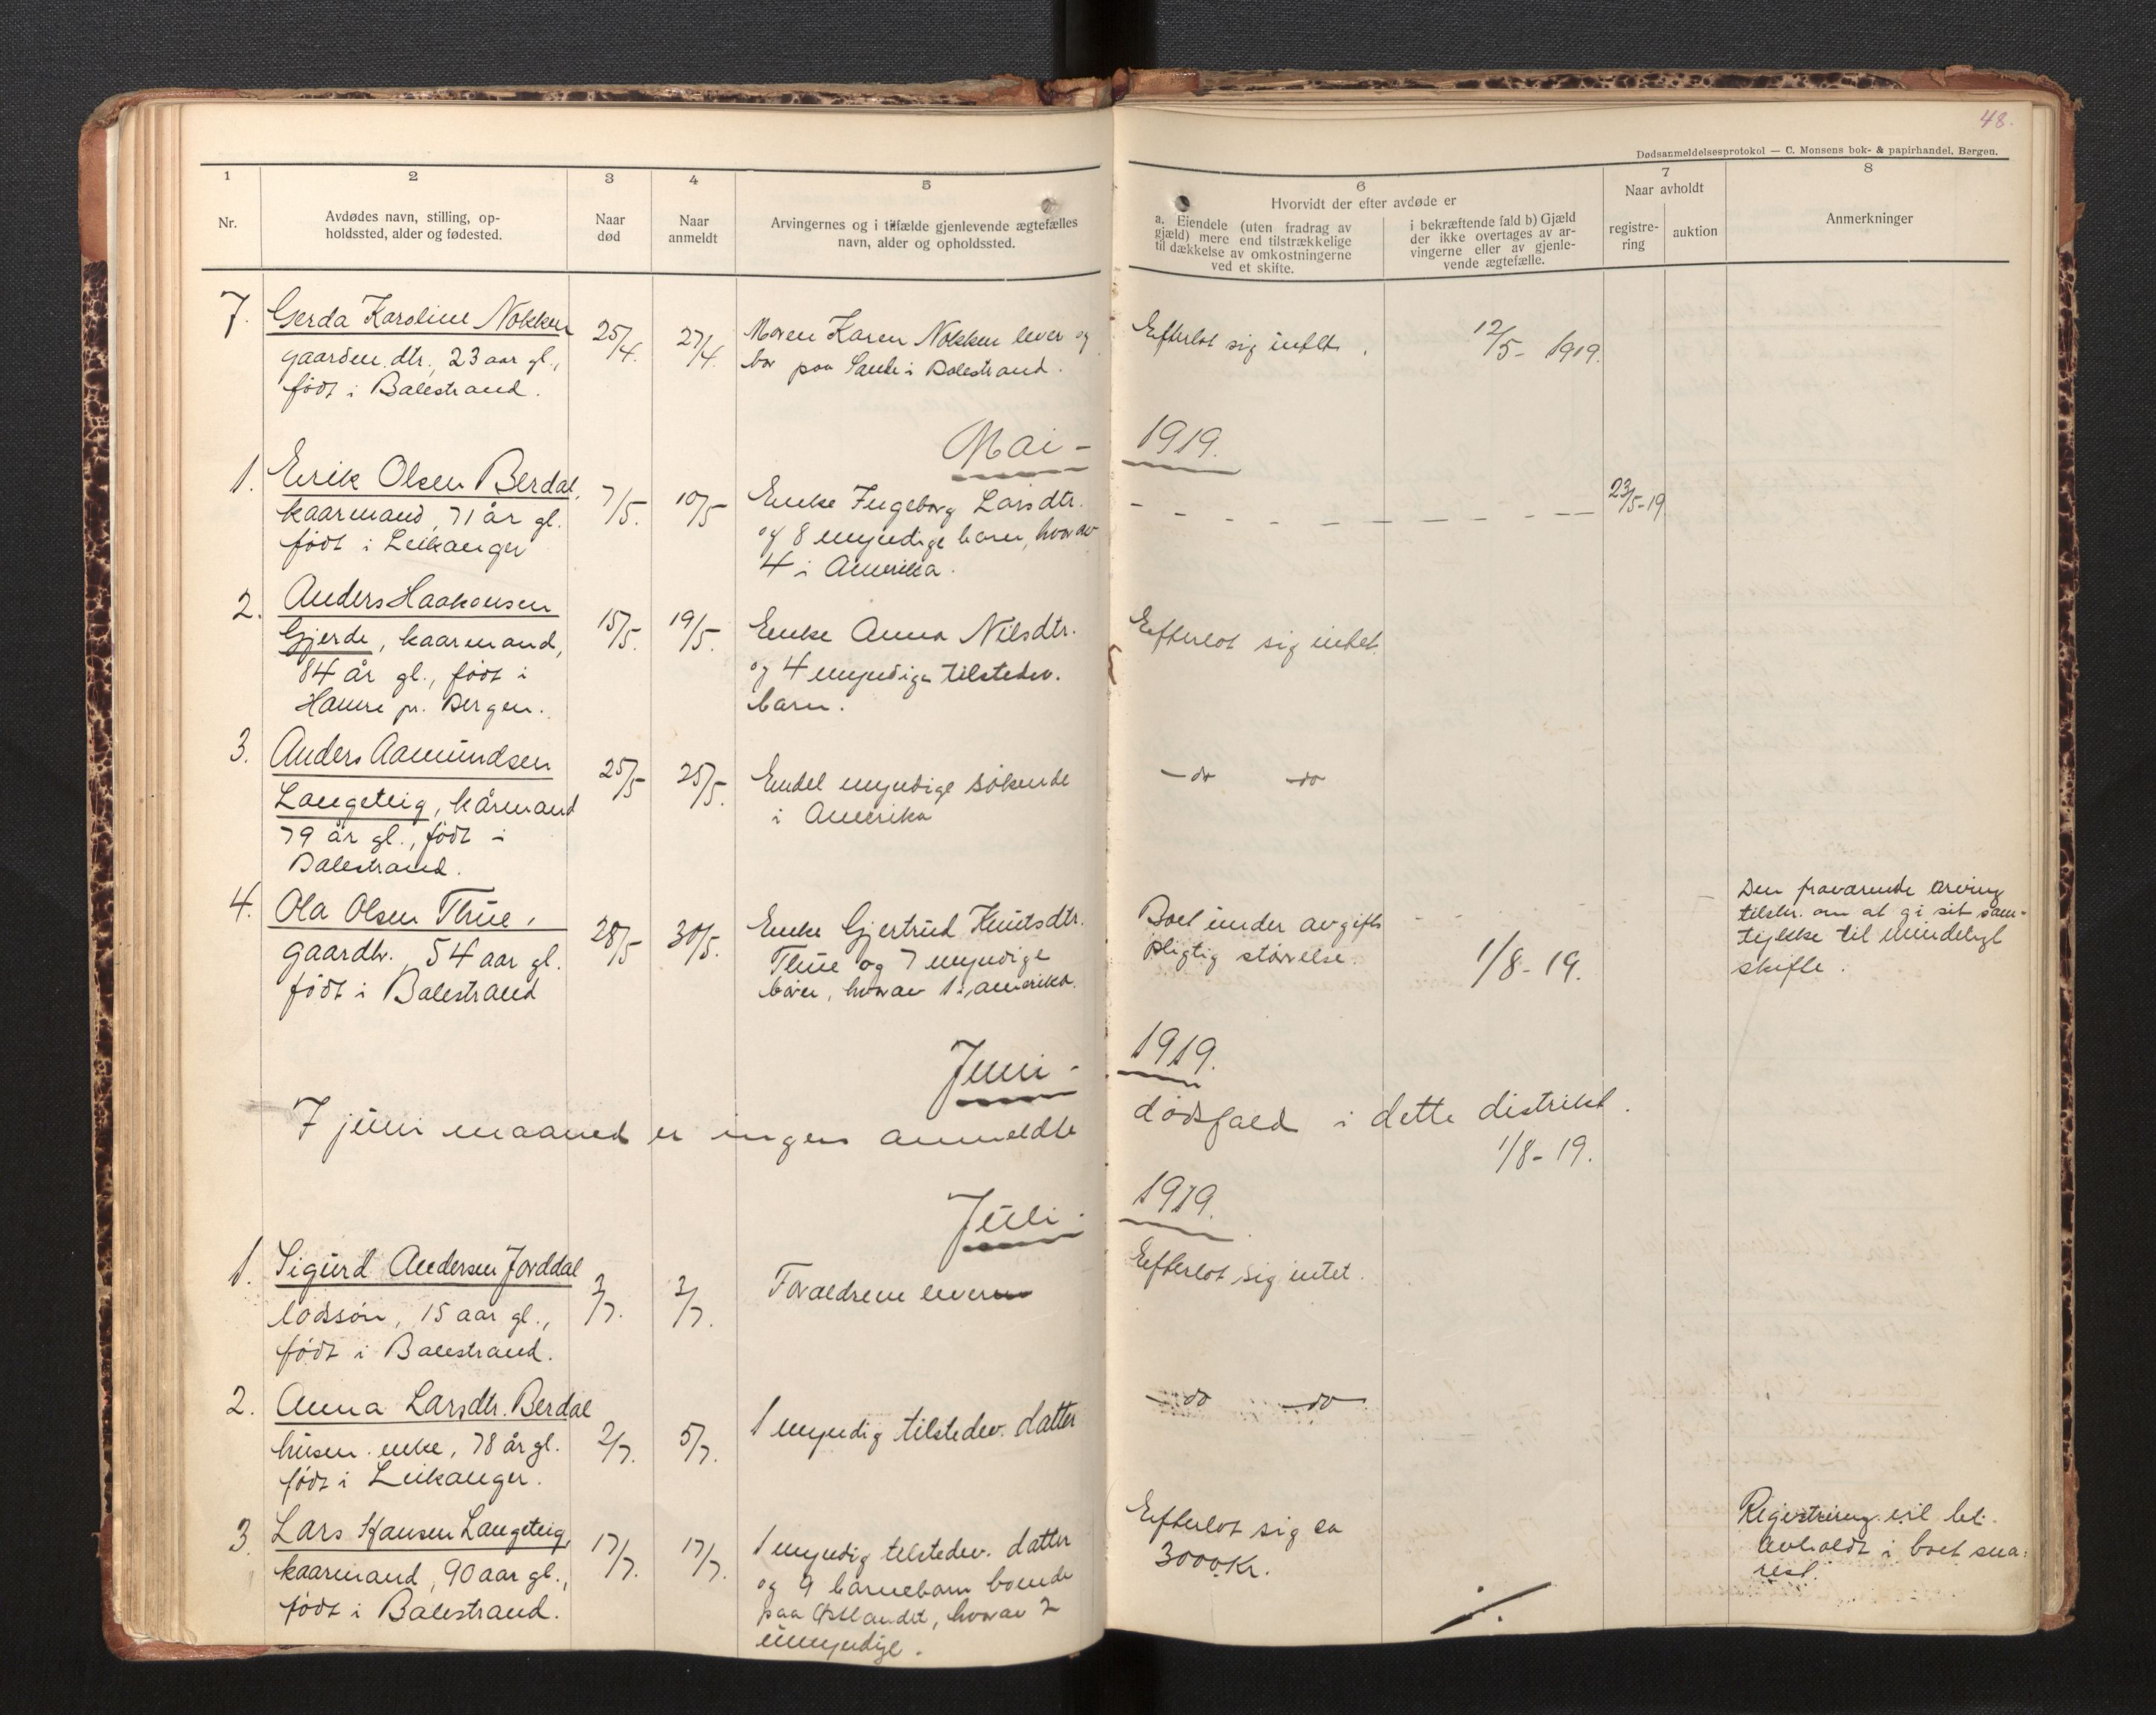 48.
Dødsanmeldelsesprotokol — C. Monsens bok- & papirhandel, Bergen.
1
2
3
4
5
6
7
8
Nr.
Avdødes navn, stilling, op-
holdssted, alder og fødested.
Naar
død
Naar
anmeldt
Arvingernes og i tilfælde gjenlevende ægtefælles
navn, alder og opholdssted.
Hvorvidt der efter avdøde er
a. Eiendele (uten fradrag av
gjæld) mere end tilstrækkelige
til dækkelse av omkostningerne
ved et skifte.
i bekræftende fald b) Gjæld
der ikke overtages av ar-
vingerne eller av gjenle-
vende ægtefælle.
Naar avholdt
registre-
ring
auktion
Anmerkninger
7. Gerda Karoline Nokken
gaardm. dtr., 23 aar gl.,
født i Balestrand.
25/4.
27/4.
Moren Karen Nokken lever og
bor paa Sande i Balestrand.
Efterlot sig intet.
12/5- 1919.
Mai - 1919.
1. Erik Olsen Berdal,
kaarmand, 71 år gl.
født i Leikanger
7/5.
10/5
Enke Ingeborg Larsdtr.
og 8 myndige barn, hvorav
4 i Amerika.
- - - - - - - - - -
23/5-19
2. Anders Haakonsen
Gjerde, kaarmand,
84 år gl., født i
Hamre pr. Bergen.
15/5.
19/5.
Enke Anna Nilsdtr.
og 4 myndige tilstedev.
barn.
Efterlot sig intet.
3. Anders Aamundsen
Langeteig, kårmand
79 år gl., født i
Balestrand.
25/5
25/5.
Endel myndige søkende
i Amerika
— do — do
4. Ola Olsen Thue,
gaardbr. 54 aar gl.
født i Balestrand
28/5
30/5.
Enke Gjertrud Knutsdtr.
Thue og 7 myndige
barn, hvorav 1 i Amerika.
Boet under avgifts
pligtig størrelse.
1/8-19.
Den fraværende arving
tilskr. om at gi sit sam-
tykke til mindeligt
skifte.
Juni - 1919.
I juni maaned er ingen anmeldte dødsfald i dette distrikt.
1/8-19.
Juli - 1919.
1. Sigurd Andersen Jorddal
lodssøn, 15 aar gl.,
født i Balestrand.
2/7.
2/7.
Forældrene lever
Efterlot sig intet.
2. Anna Larsdtr. Berdal
husm. enke, 78 år gl.
født i Leikanger.
2/7.
5/7.
1 myndig tilstedev. datter
— do — do
3. Lars Hansen Langeteig,
kaarmand, 90 aar gl.,
født i Balestrand.
17/7.
17/7.
1 myndig tilstedev. datter
og 9 barnebarn boende
paa Østlandet, hvorav 2
umyndige.
Efterlot sig ca
3000 Kr.
Registrering vil bli
avholdt i boet sna-
rest